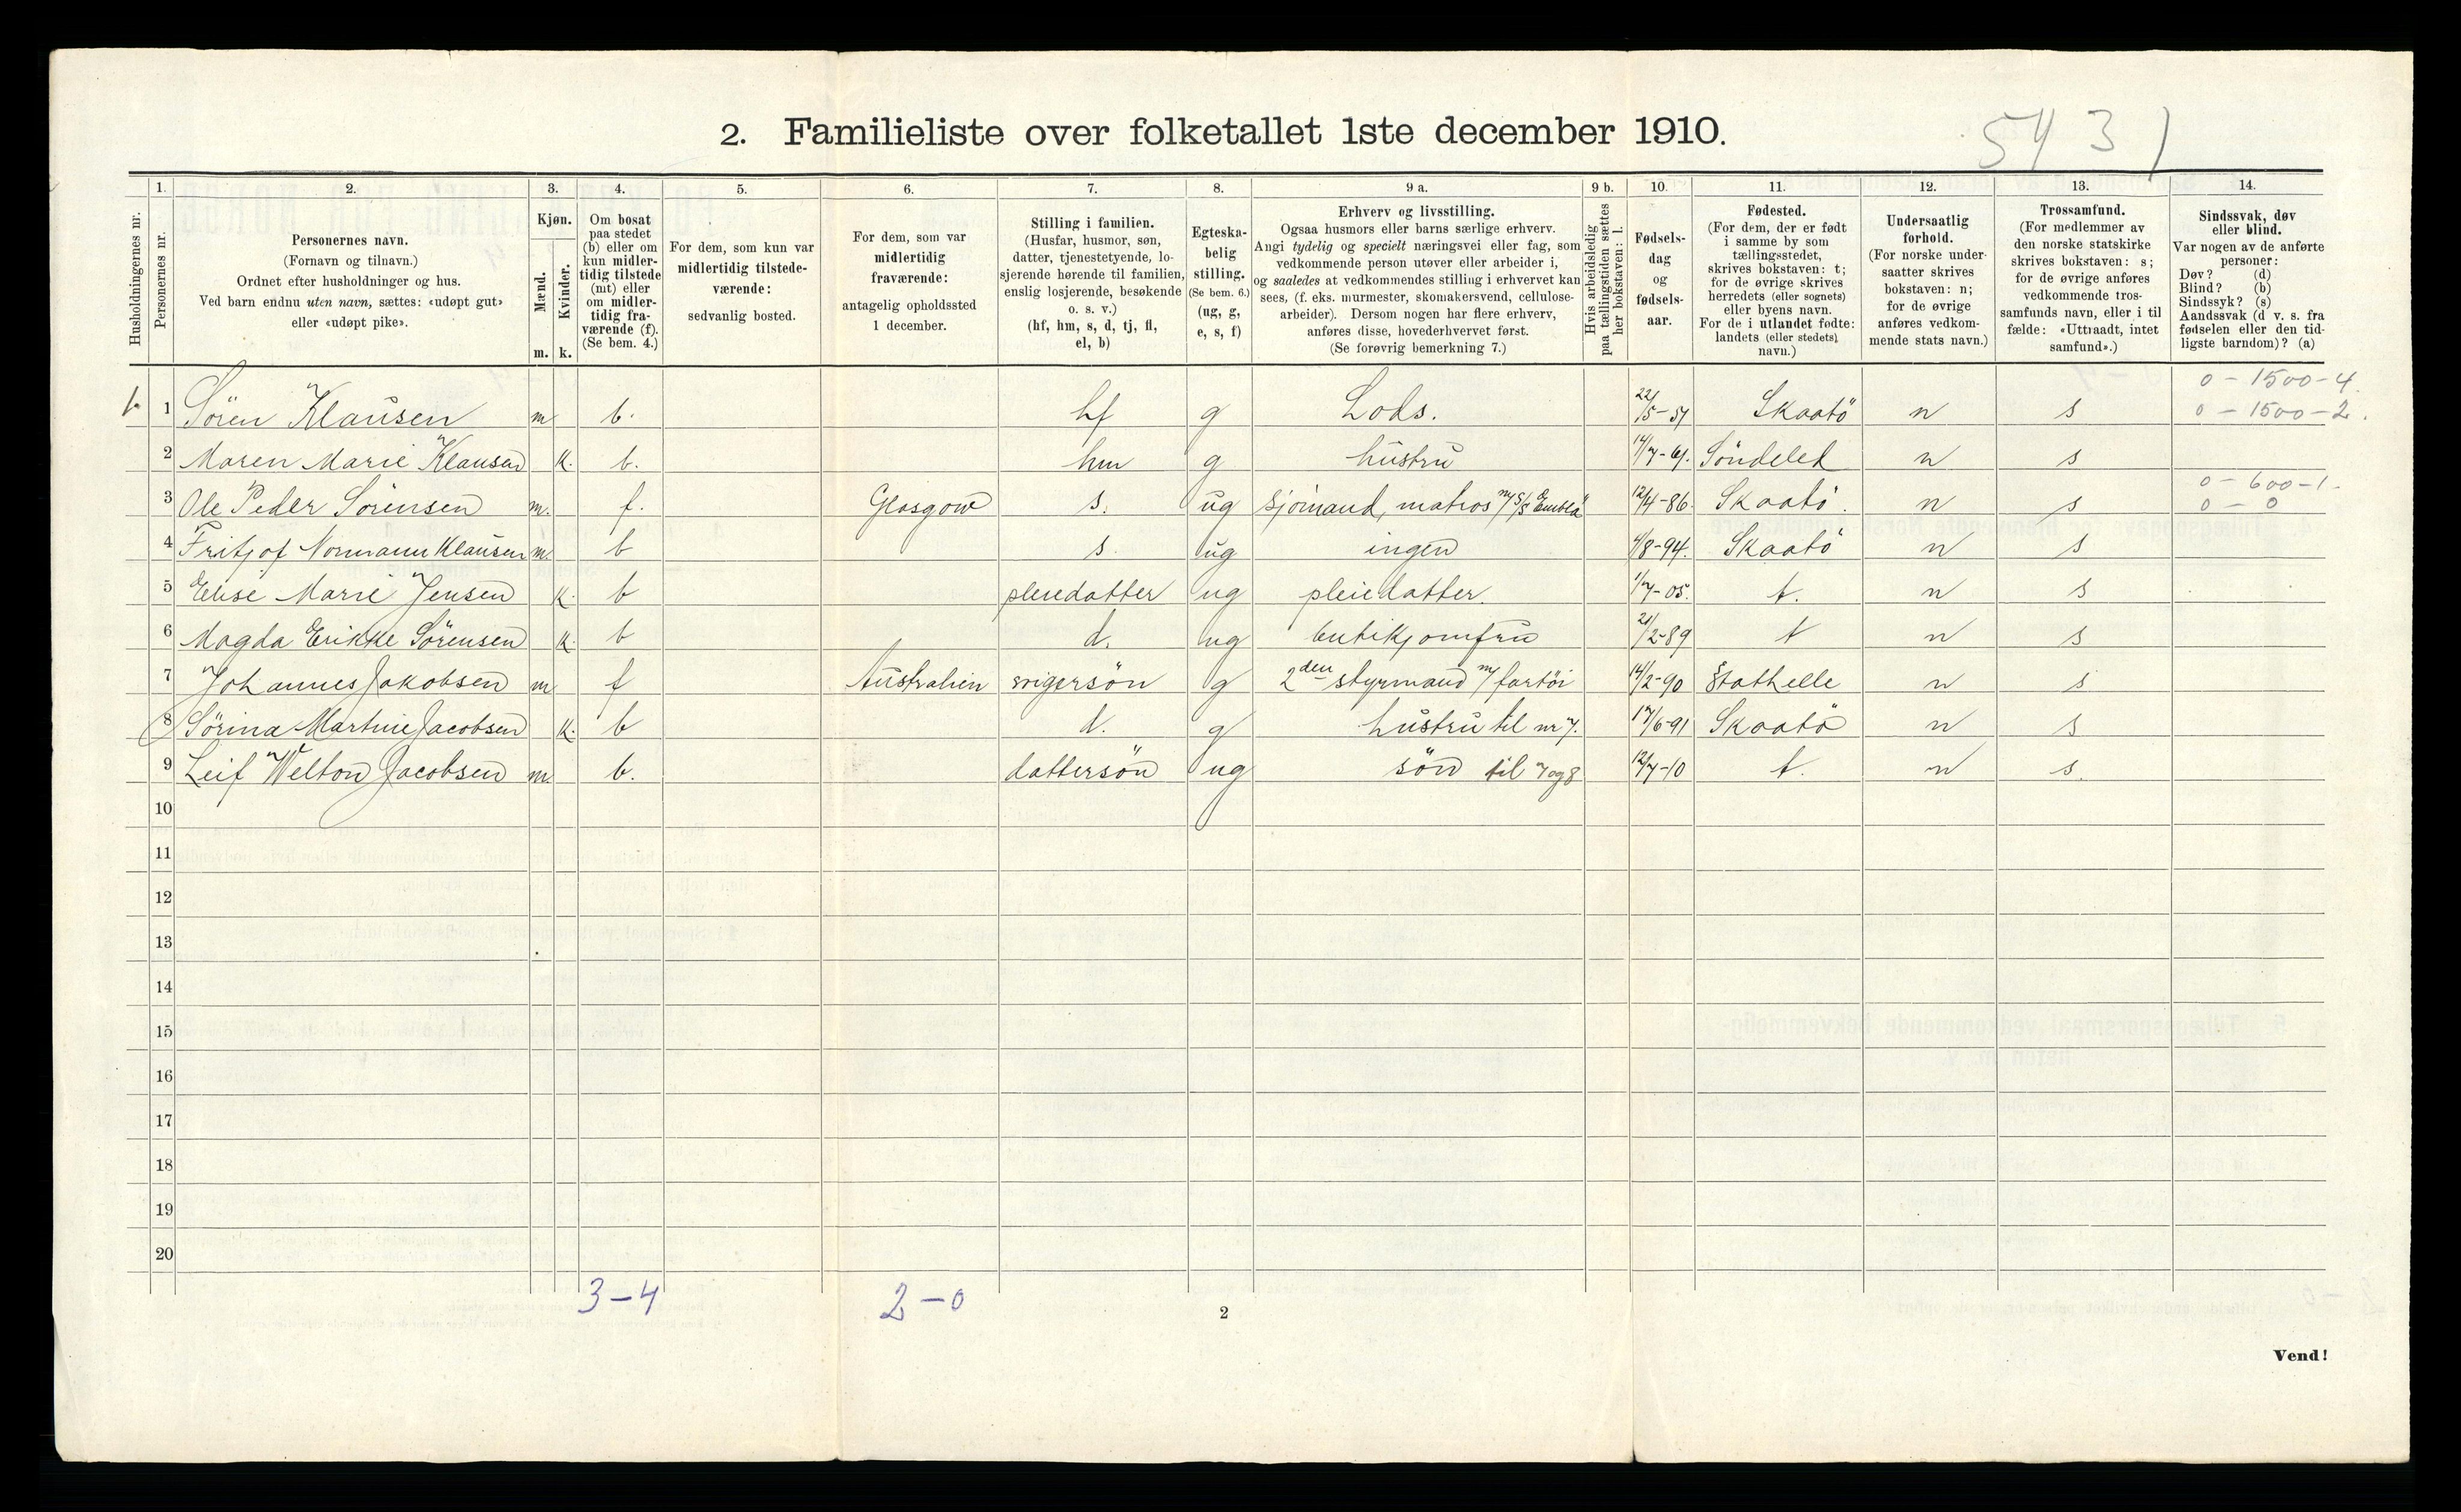 2. Familieliste over folketallet 1ste december 1910.
5431
Husholdningernes nr.
1.
Personernes nr.
2.
Personernes navn.
(Fornavn og tilnavn.)
Ordnet efter husholdninger og hus.
Ved barn endnu uten navn, sættes: «udøpt gut»
eller «udøpt pike».
3.
Kjøn.
Mænd.
Kvinder.
m. k.
4.
Om bosat
paa stedet
(b) eller om
kun midler-
tidig tilstede
(mt) eller
om midler-
tidig fra-
værende (f).
(Se bem. 4.)
5.
For dem, som kun var
midlertidig tilstede-
værende:
sedvanlig bosted.
6.
For dem, som var
midlertidig
fraværende:
antagelig opholdssted
1 december.
7.
Stilling i familien.
(Husfar, husmor, søn,
datter, tjenestetyende, lo-
sjerende hørende til familien,
enslig losjerende, besøkende
o. s. v.)
(hf, hm, s, d, tj, fl,
el, b)
8.
Egteska-
belig
stilling.
(Se bem. 6.)
(ug, g,
e, s, f)
9 a.
Erhverv og livsstilling.
Ogsaa husmors eller barns særlige erhverv.
Angi tydelig og specielt næringsvei eller fag, som
vedkommende person utøver eller arbeider i,
og saaledes at vedkommendes stilling i erhvervet kan
sees, (f. eks. murmester, skomakersvend, cellulose-
arbeider). Dersom nogen har flere erhverv,
anføres disse, hovederhvervet først.
(Se forøvrig bemerkning 7.)
9 b.
Hvis arbeidsledig
paa tællingstiden sættes
her bokstaven: l.
10.
Fødsels-
dag
og
fødsels-
aar.
11.
Fødested.
(For dem, der er født
i samme by som
tællingsstedet,
skrives bokstaven: t;
for de øvrige skrives
herredets (eller sognets)
eller byens navn.
For de i utlandet fødte:
landets (eller stedets)
navn.)
12.
Undersaatlig
forhold.
(For norske under-
saatter skrives
bokstaven: n;
for de øvrige
anføres vedkom-
mende stats navn.)
13.
Trossamfund.
(For medlemmer av
den norske statskirke
skrives bokstaven: s;
for de øvrige anføres
vedkommende tros-
samfunds navn, eller i til
fælde: «Uttraadt, intet
samfund».)
14.
Sindssvak, døv
eller blind.
Var nogen av de anførte
personer:
Døv? (d)
Blind? (b)
Sindssyk? (s)
Aandssvak (d v. s. fra
fødselen eller den tid-
ligste barndom)? (a)
0 - 1500 - 4.
1. 1 Sören Klausen m b. hf g Lods. 22/5-57 Skaatö n s 0 - 1500 - 2.
2 Maren Marie Klausen k. b. hm g hustru 14/7-61. Söndeled n s
0 - 600 - 1.
3 Ole Peder Sörensen m. f. Glasgow s. ug sjömand, matros m/ S/S "Embla" 12/4-86. Skaatö. n s 0 - 0
4 Fritjof Normann Klausen m. b s. ug ingen 4/8-94. Skaatö n s
5 Elise Marie Jensen k. b pleiedatter ug pleiedatter. 1/7-05. t. n s
6 Magda Erikke Sörensen k. b d. ug butikjomfru 21/2-89 t n s
7 Johannes Jakobsen m f Australien svigersön g 2den styrmand m/ fartöi 14/2-90 Stathelle n s
8 Sörina Martine Jacobsen k. b d. g hustru til nr 7. 17/6-91 Skaatö n s
9 Leif Welton Jacobsen m. b. dattersön ug sön til 7 og 8 12/7-10 t. n s.
10
11
12
13
14
15
16
17
18
19
20
3-4 2-0
2
Vend!